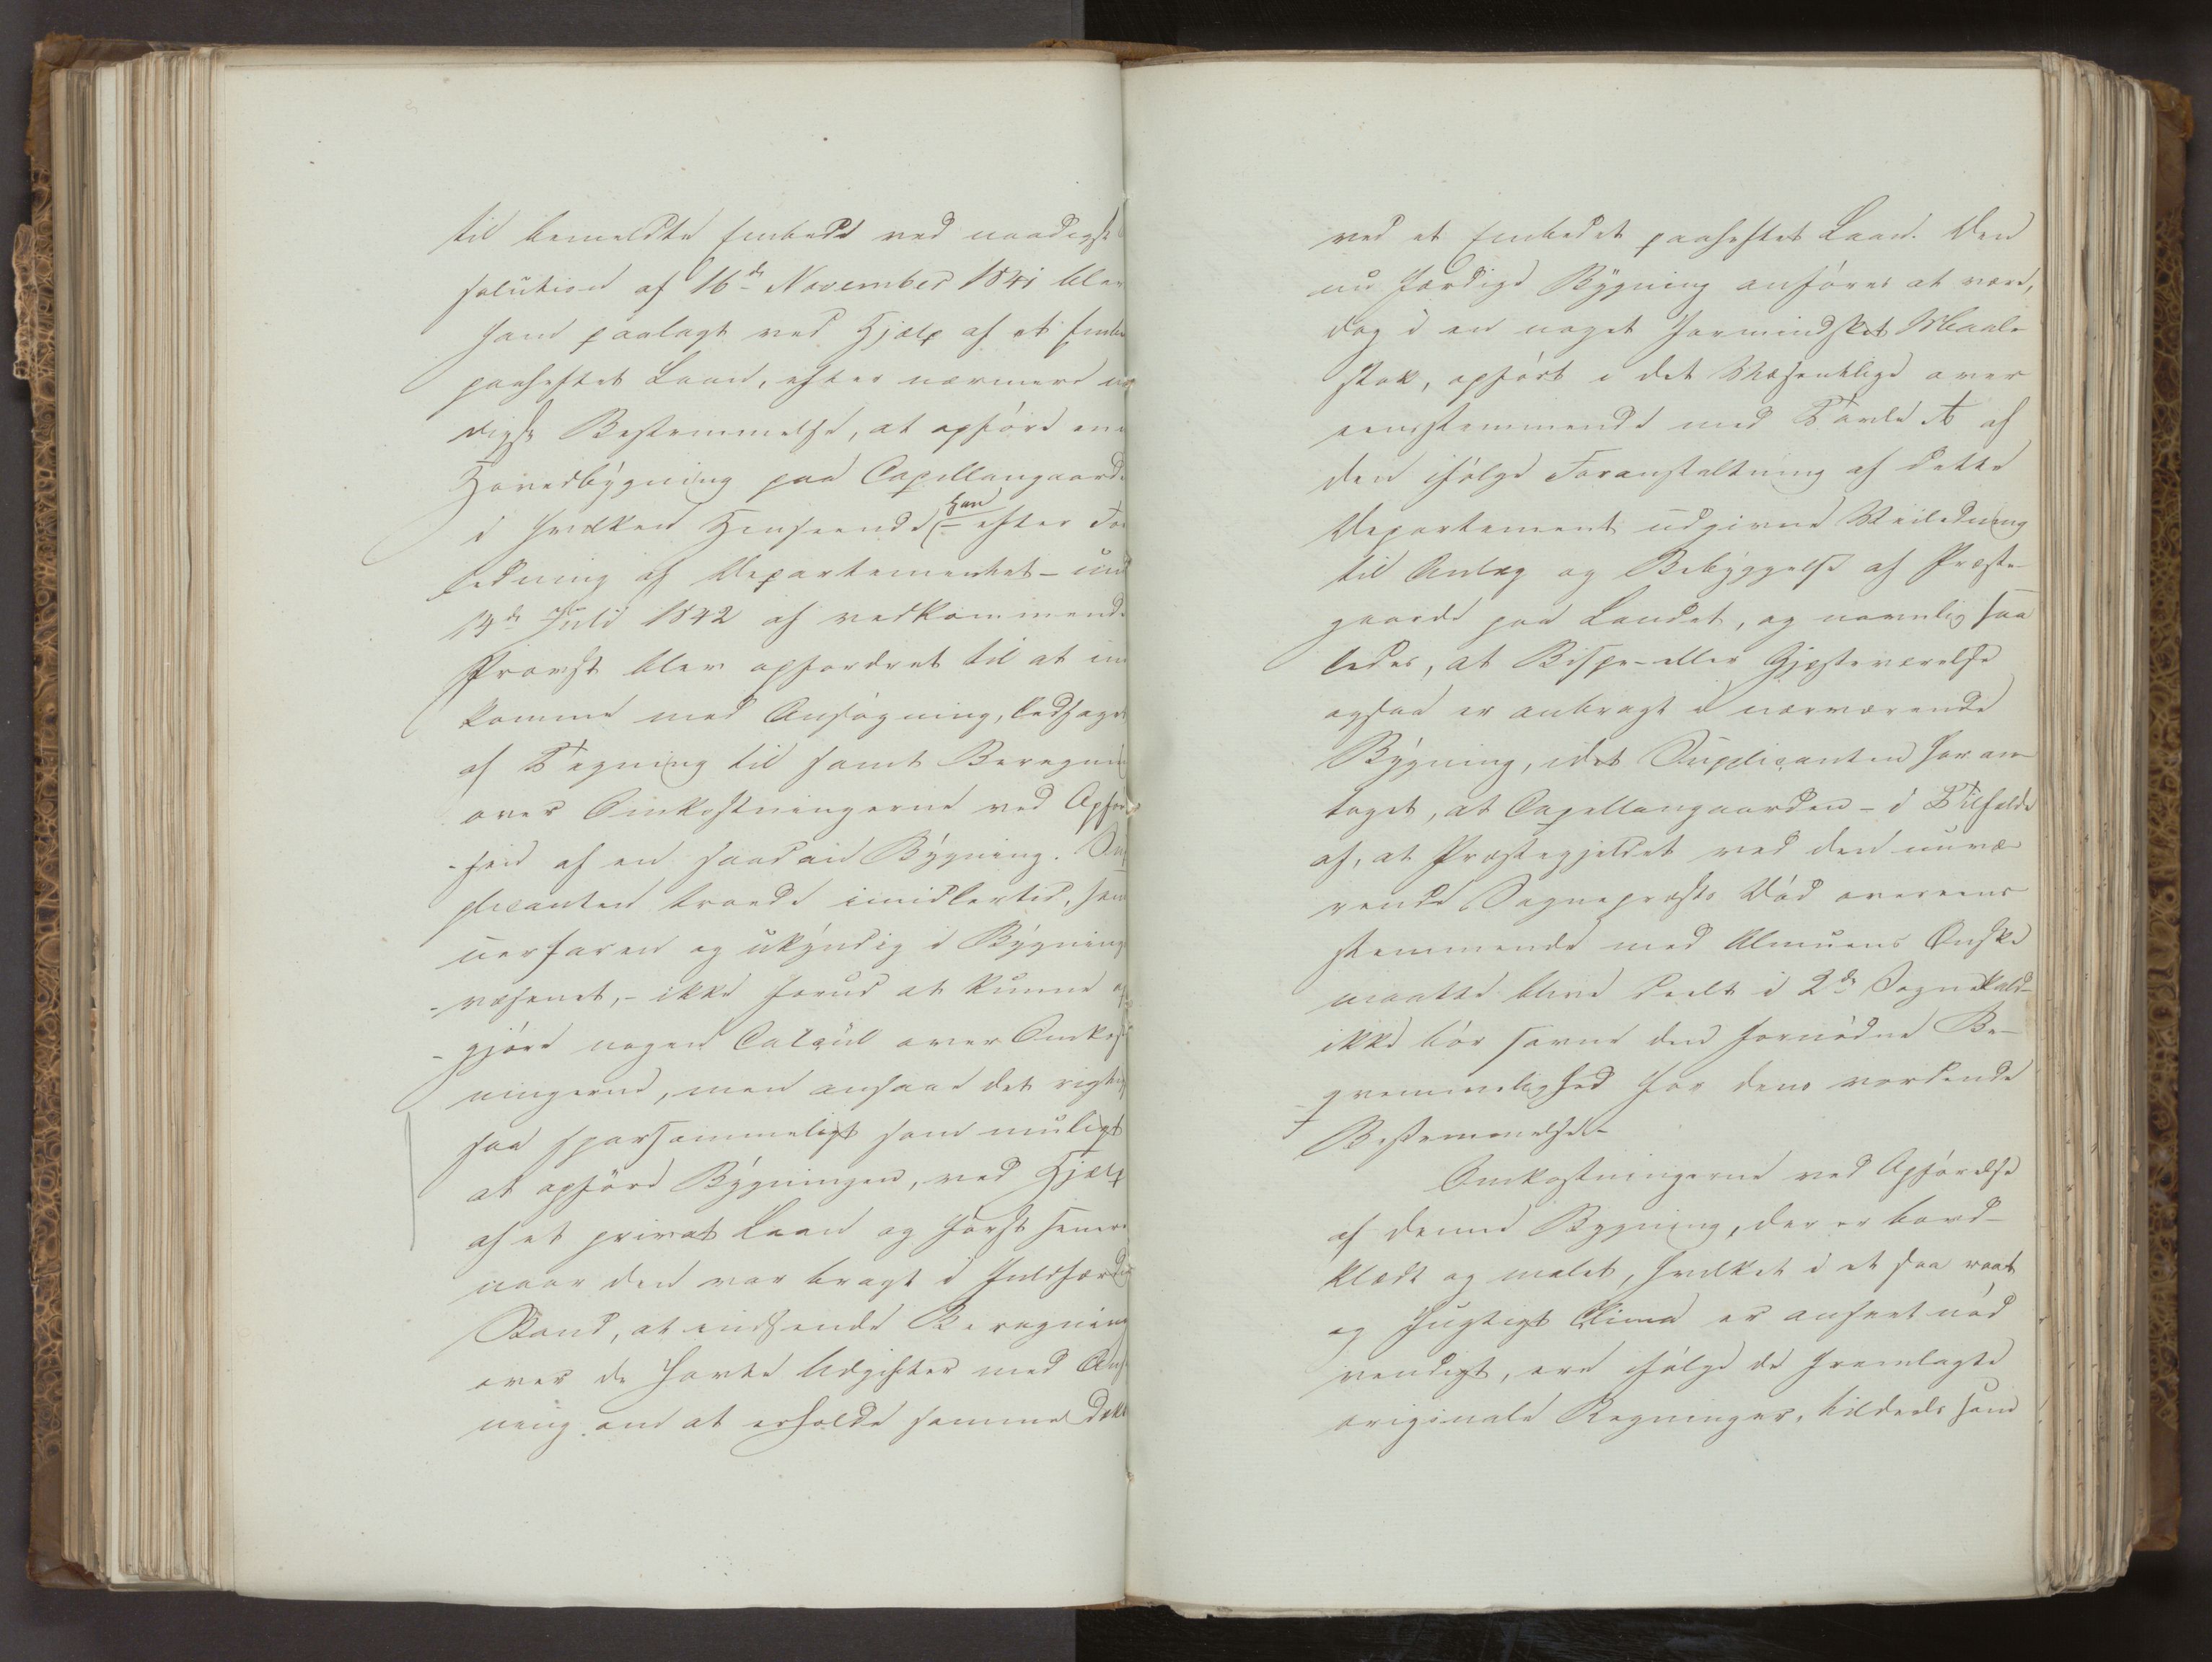 til bemeldte Embede ved naadigst
solution af 16de November 1841 blev
ham paalagt ved Hjælp af et Embe
paaheftet Laan, efter nærmere na
digst Bestemmelse, at opføre en
Hovedbygning paa Capellangaarde
i hvilken Henseende Han efter For
ledning af Departementet - und
14de Juli 1842 af vedkommende
Provst blev opfordret til at ind
komme med Ansøgning, ledsaget
af Tegning til samt Beregning
over Omkostningerne ved Opfør
-sen af en saadan Bygning. Sup
plicanten troede imidlertid, som
uerfaren og ukyndig i Bygnings
-væsenet, - ikke forud at kunne op
-gjøre nogen Calcül over Omkost
ningerne, men ansaae det rigtig
saa sparsommeligt som muligt
at opføre Bygningen, ved Hjælp
af et privat Laan og først senere
naar den var bragt i fuldfærdig
Stand, at indsende Beregning
over de havte Udgifter med Ansø
ning om at erholde samme dekk
ved et Embedet paaheftet Laan. Den
nu færdige Bygning anføres at være,
dog i en noget formindsket Maale
stok, opført i det Væsentlige over
eensstemmende med Tavle A af
den ifølge Foranstaltning af dette
Departement udgivne Veiledning
til Anlæg og Bebyggelse af Præste
gaarde paa Landet, og navnlig saa
ledes, at Bispe- eller Gjæsteværelse
ogsaa er anbragt i nærværende
Bygning, idet Supplicanten har an
taget, at Capellangaarden - i Tilfælde
af, at Præstegjeldet ved den nuvæ
rende Sognepræsts Død overeens
stemmende med Almuens Ønske
maatte blive deelt i 2de Sognekald -
ikke bør savne den fornødne Be-
qvemmelighed for dens vordende
Bestemmelse.
Omkostningerne ved Opførelse
af denne Bygning, der er bord-
klædt og malet, hvilket i et saa raat
og fugtigt Clima er anseet nød
vendigt, ere ifølge de fremlagte
originale Regninger, tildeels som